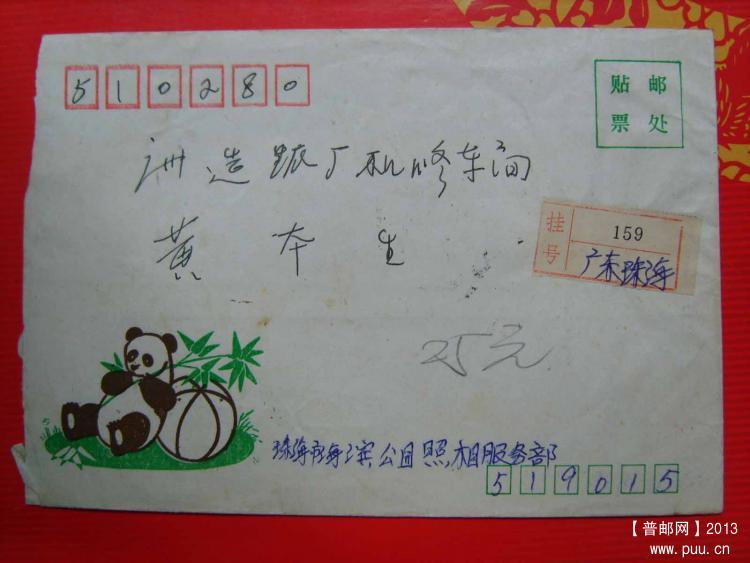 510280
贴邮
票处
洲造纸厂机修车间
挂号
159
广东珠海
黄本生
25元
珠海市海滨公园照相服务部
519015
【普邮网】2013
www.puu.cn